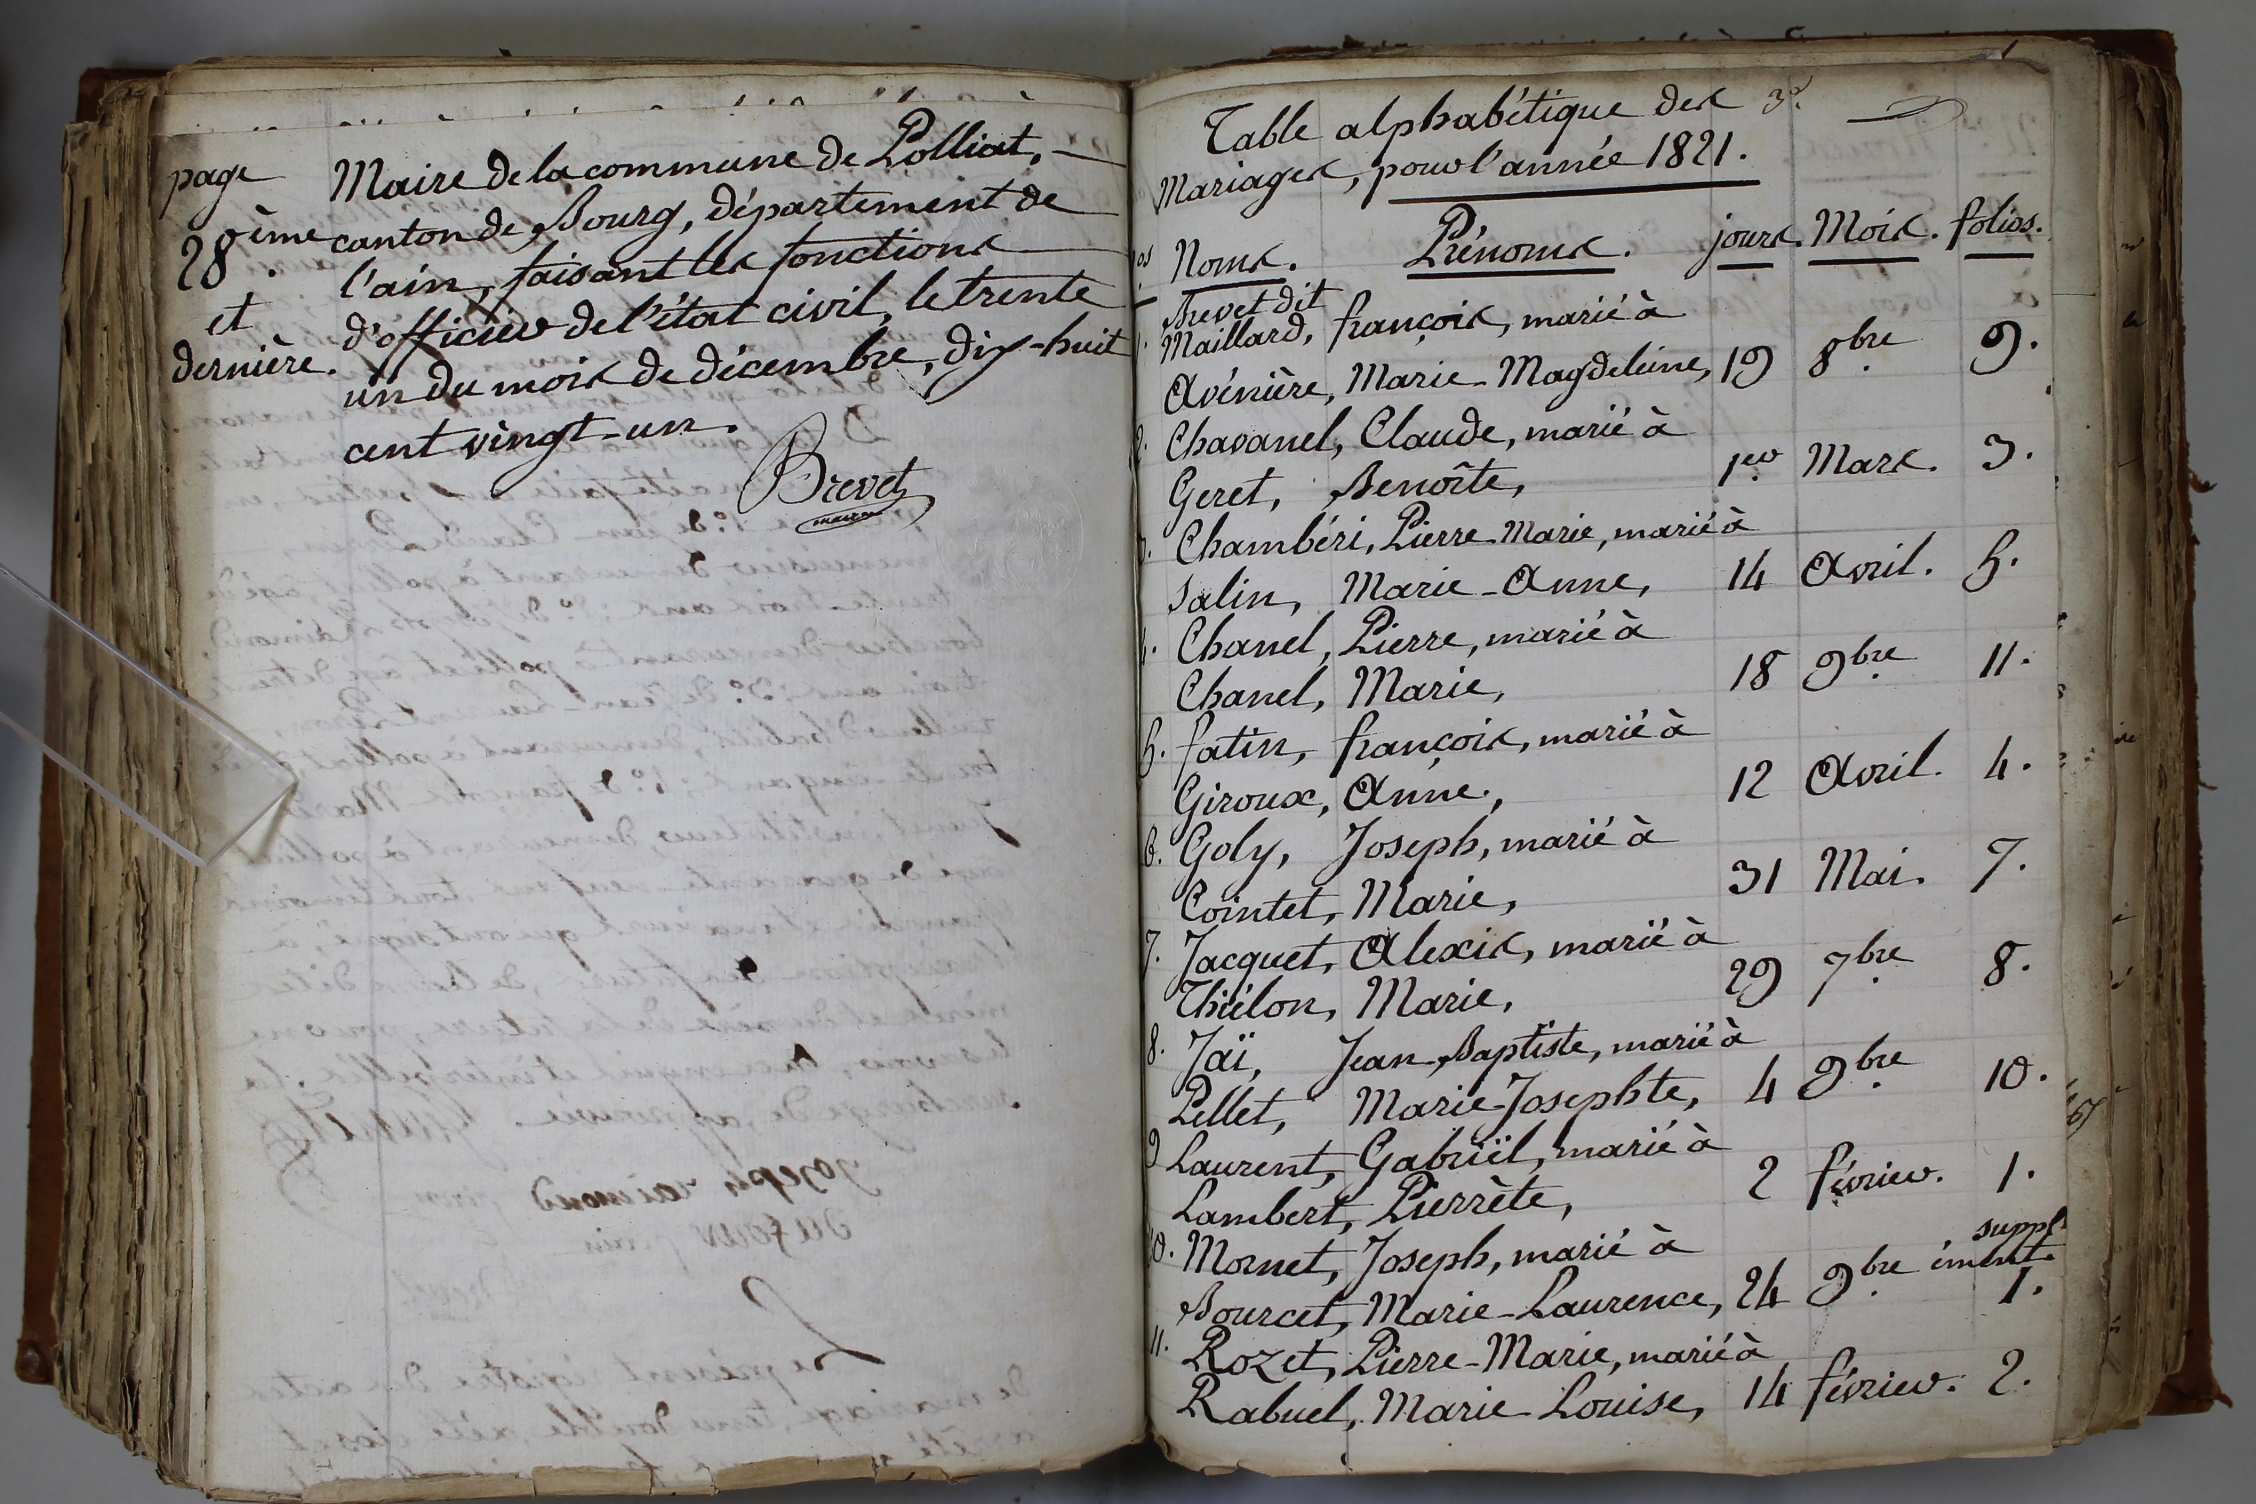 page
28ème.
et
dernière.
Maire de la commune de Polliat,
canton de Bourg, département de
l'ain, faisant les fonctions
d'officier de l'état civil, le trente
un du mois de décembre, dix-huit
cent vingt-un.
Brevet
maire
Table alphabétique des
Mariages, pour l'année 1821.
Noms. Prénoms. jours. Mois. folios.
Brevet dit
Maillard, françois, marié à
Avénière, Marie-Magdeleine, 19 8bre. 9.
2. Chavanel, Claude, marié à
Geret, Benoîte, 1er. Mars. 3.
3. Chambéri, Pierre-Marie, marié à
Salin, Marie-Anne, 14 Avril. 5.
4. Chanel, Pierre, marié à
Chanel, Marie, 18 9bre. 11.
5. fatin, françois, marié à
Giroux, Anne, 12 Avril. 4.
6. Goly, Joseph, marié à
Cointet, Marie, 31 Mai. 7.
7. Jacquet, Alexis, marié à
Thiélon, Marie, 29 7bre. 8.
8. Jaï, Jean-Baptiste, marié à
Pellet, Marie-Josephte, 4 9bre. 10.
9 Laurent, Gabriël, marié à
Lambert, Pierrète, 2 février. 1.
10. Mornet, Joseph, marié à
Bourcet, Marie-Laurence, 24 9bre. supplément. 1.
11. Rozet, Pierre-Marie, marié à
Rabuel, Marie-Louise, 14 février. 2.